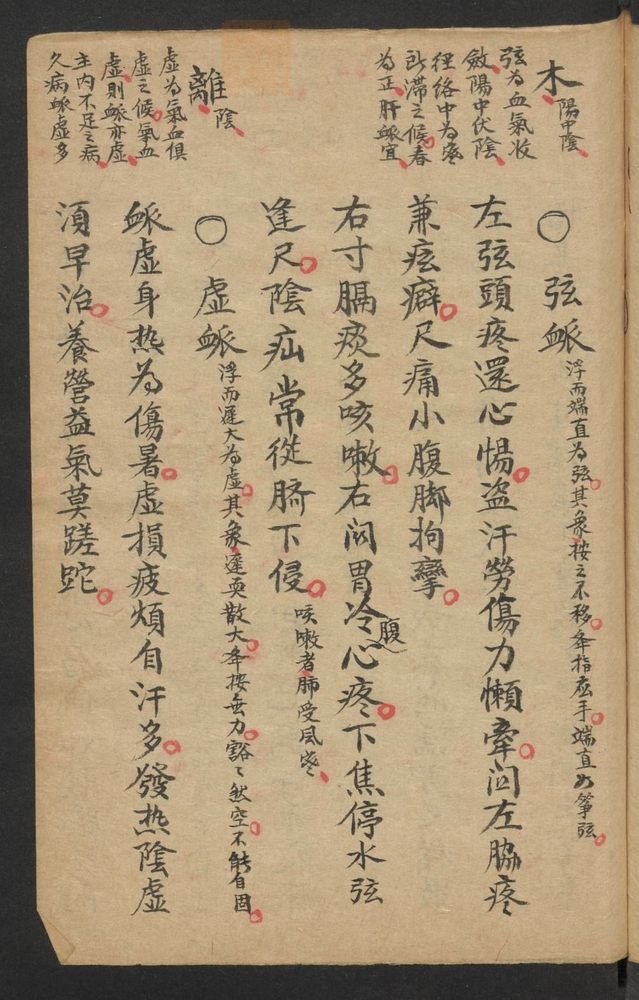 木 陽中陰
弦為血氣收
斂陽中伏陰
経絡中為寒
所滯之候春
為正肝脈宜
離 陰
虛為氣血俱
虛之候氣血
虛則脈亦虛
主內不足之病
久病脈虛多
○ 弦脈 浮而端直為弦其象按之不移舉指應手端直如箏弦
左弦頭疼還心惕盜汗勞傷力懶牽関左脇疼
兼痃癖尺痛小腹脚拘攣
右寸膈痰多咳嗽右関胃冷心腹疼下焦停水弦
逢尺陰疝常從臍下侵 咳嗽者肺受風寒
○ 虛脈 浮而遲大為虛其象遲耎散大舉按無力豁々然空不能自固
脈虛身热為傷暑虛損疲煩自汗多發热陰虛
須早治養營益氣莫蹉跎